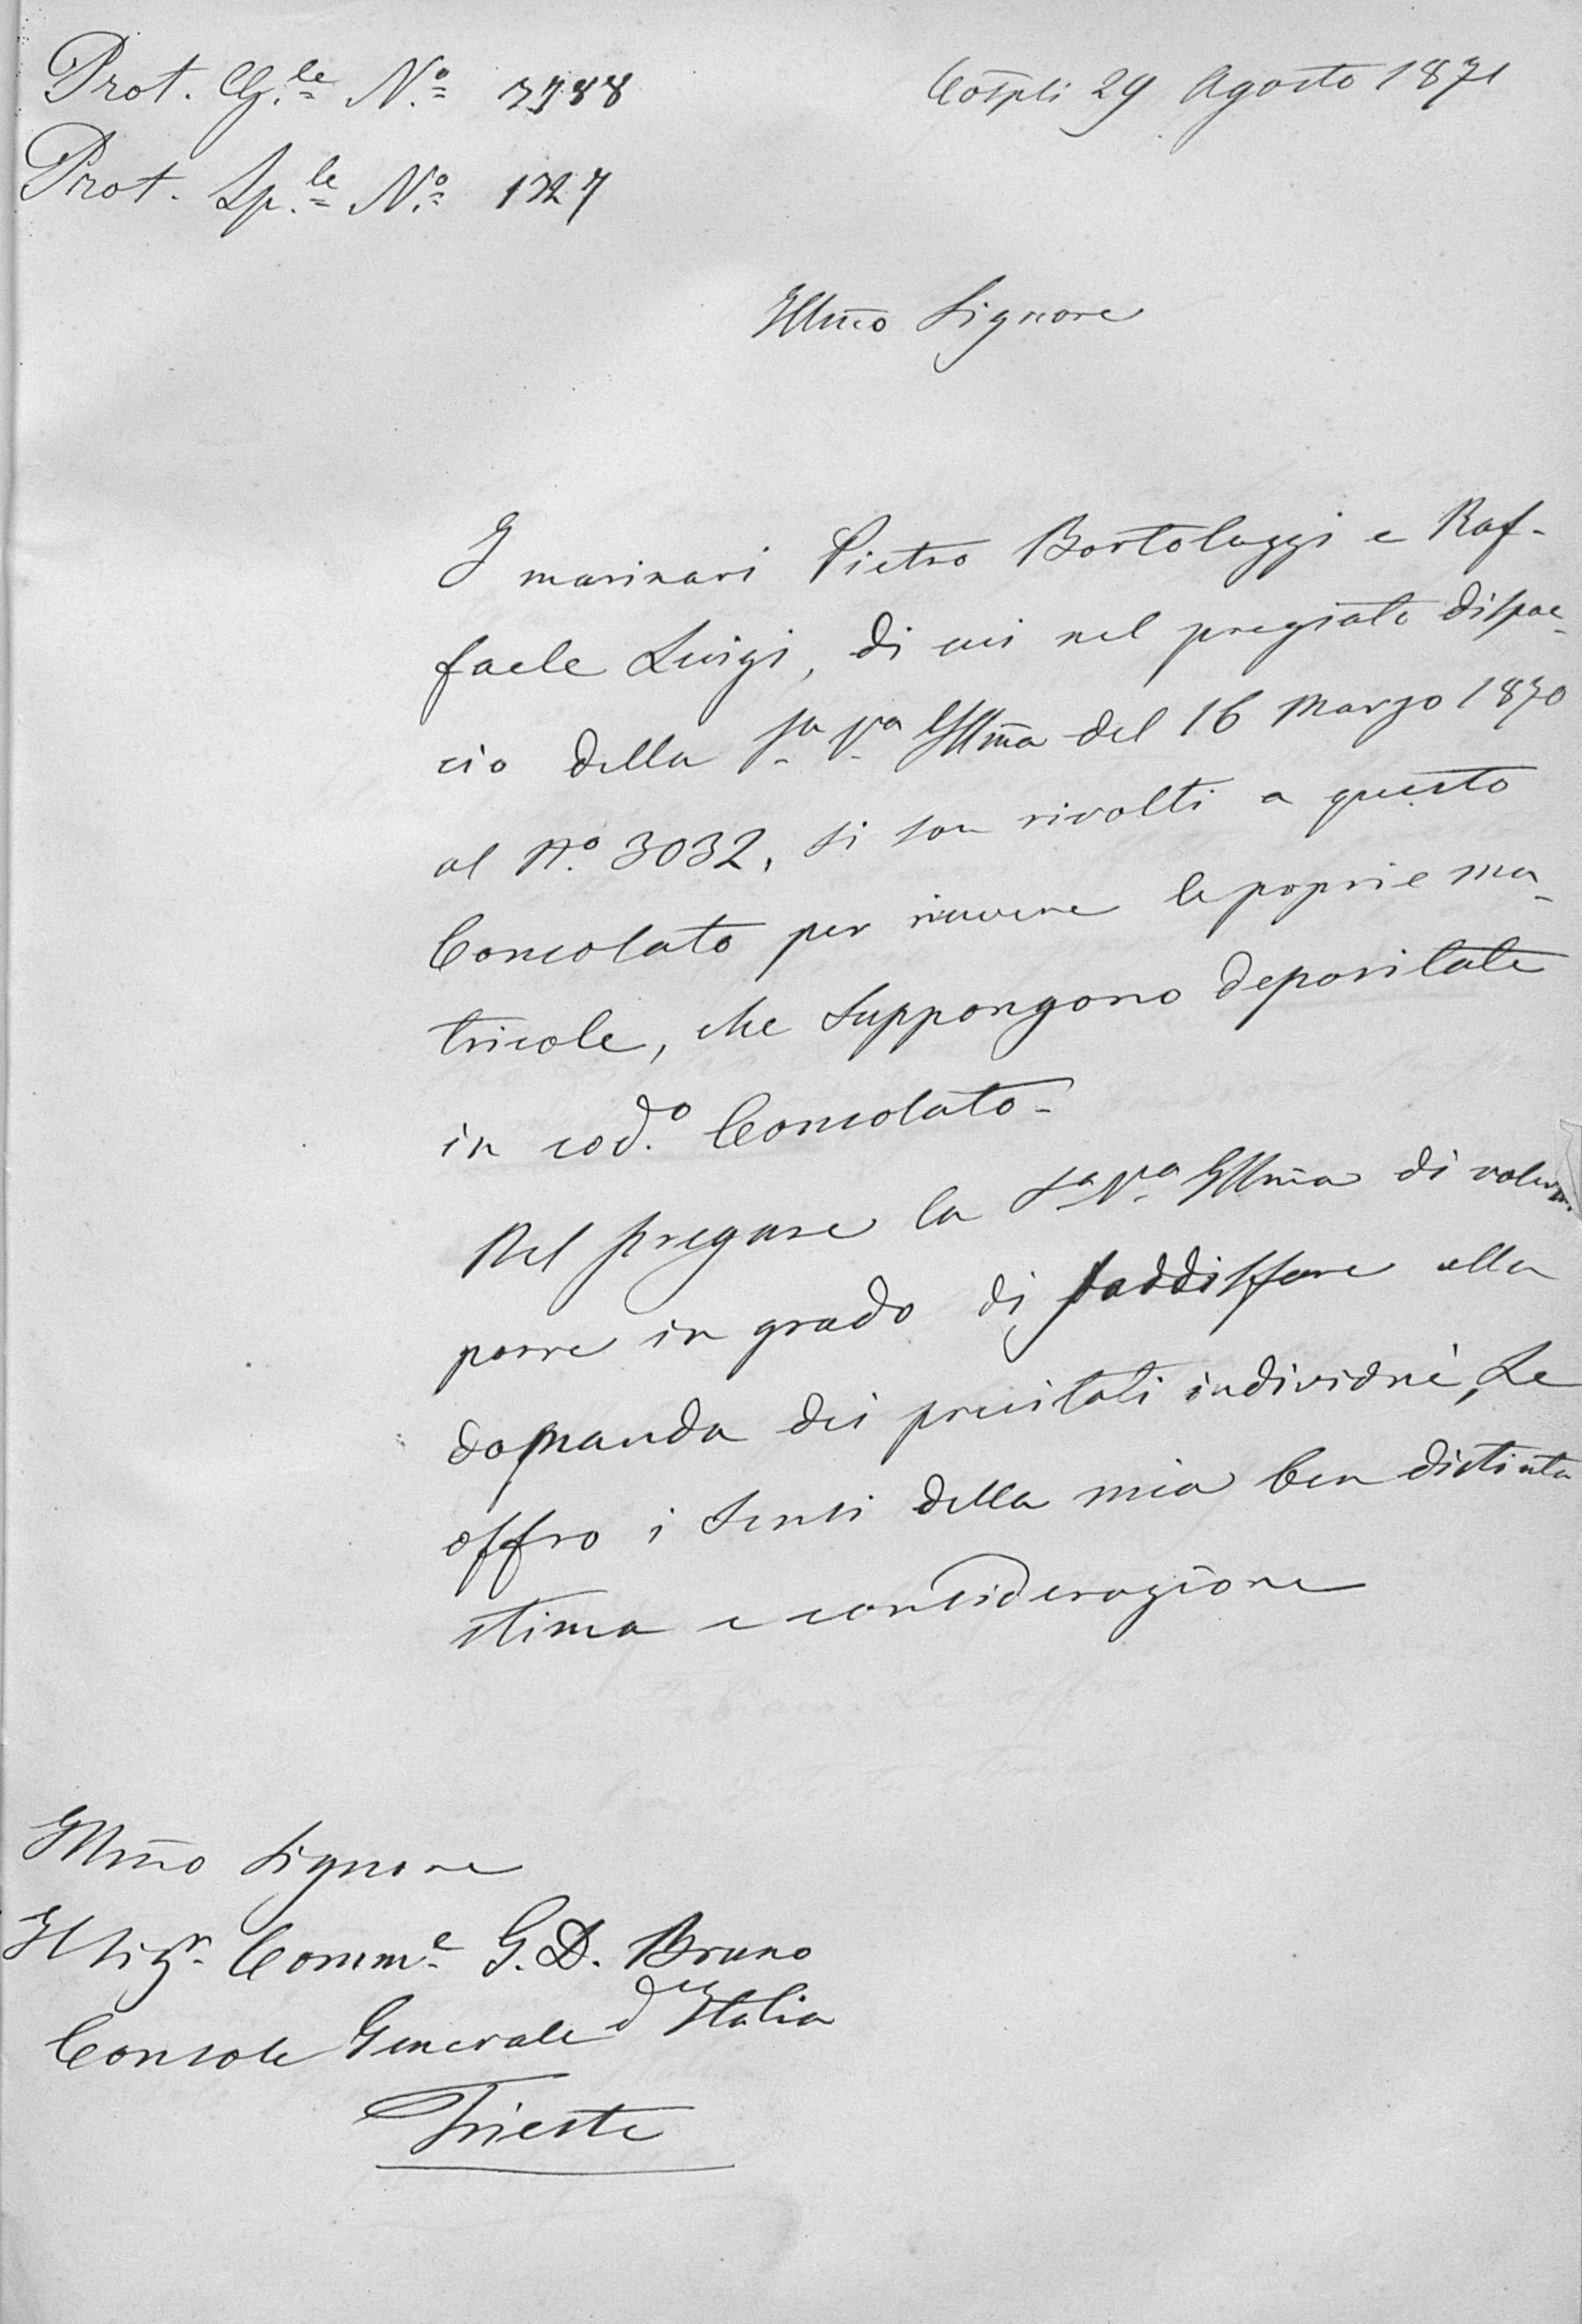 Prot. G.le N.o 3788
Cospli 29 Agosto 1871
Prot. Sp.le N.o 1727
Illmo Signore
I marinari Pietro Bortoluzzi e Raf-
faele Luigi, di cui nel pregiato dispac-
cio della Sa Va Illma del 16 Marzo 1870
al No. 3032, si son rivolti a questo
Consolato per riavere le proprie ma-
tricole, che suppongono depositate
in cod.o Consolato-
Nel pregare la Sa Va Illma di voler
porre in grado di soddisfare alla
domanda dei precitati individui, Le
offro i sensi della mia ben distinta
stima e considerazione
Illmo Signore
Il Sigr. Comme. G. D. Bruno
Console Generale d'Italia
Trieste